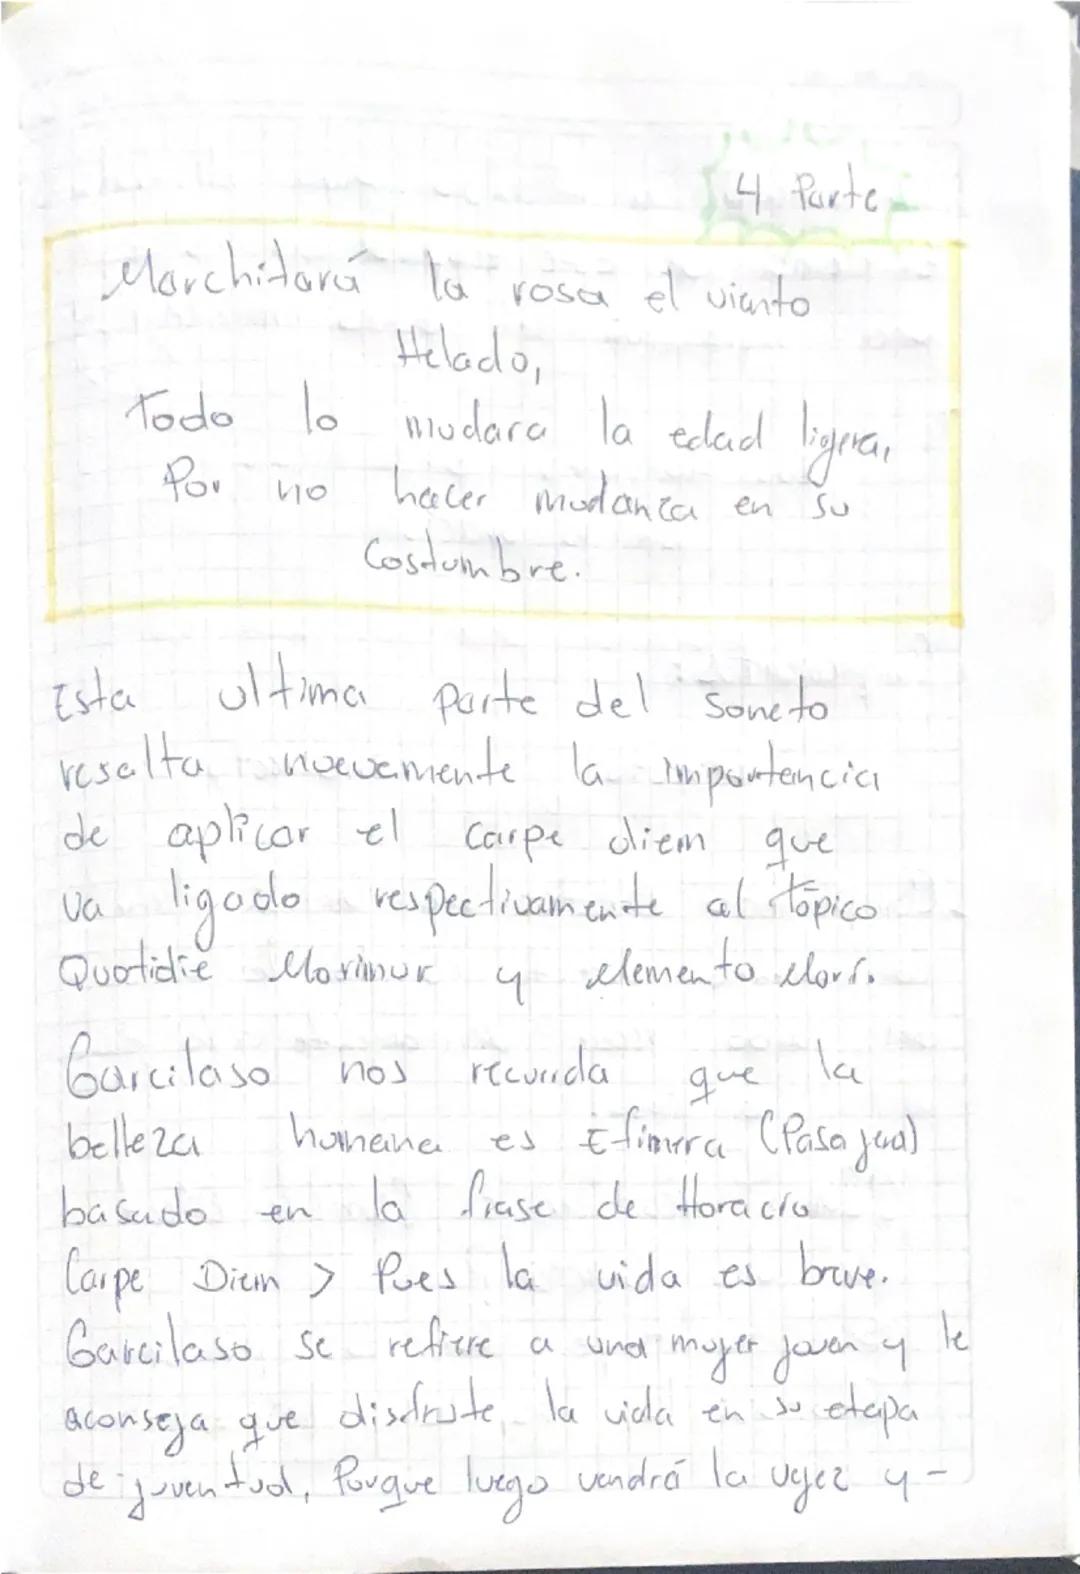 4 Parte
Marchitará la rosa el viento
Helado,
Todo lo mudara la edad ligera,
Por no hacer mudanza en su
Costumbre.
Esta ultima parte del soneto
resalta nuevamente la importancia
de aplicar el carpe diem que
va ligado respectivamente al tópico
Quotidie Morimur y elemento Mori.
Garcilaso nos recuerda que la
belleza humana es Efimera (Pasajera)
basado en la frase de Horacio
Carpe Diem > Pues la vida es breve.
Garcilaso se refiere a una mujer joven y le
aconseja que disfrute la vida en su etapa
de juventud, Porque luego vendrá la vejez y-